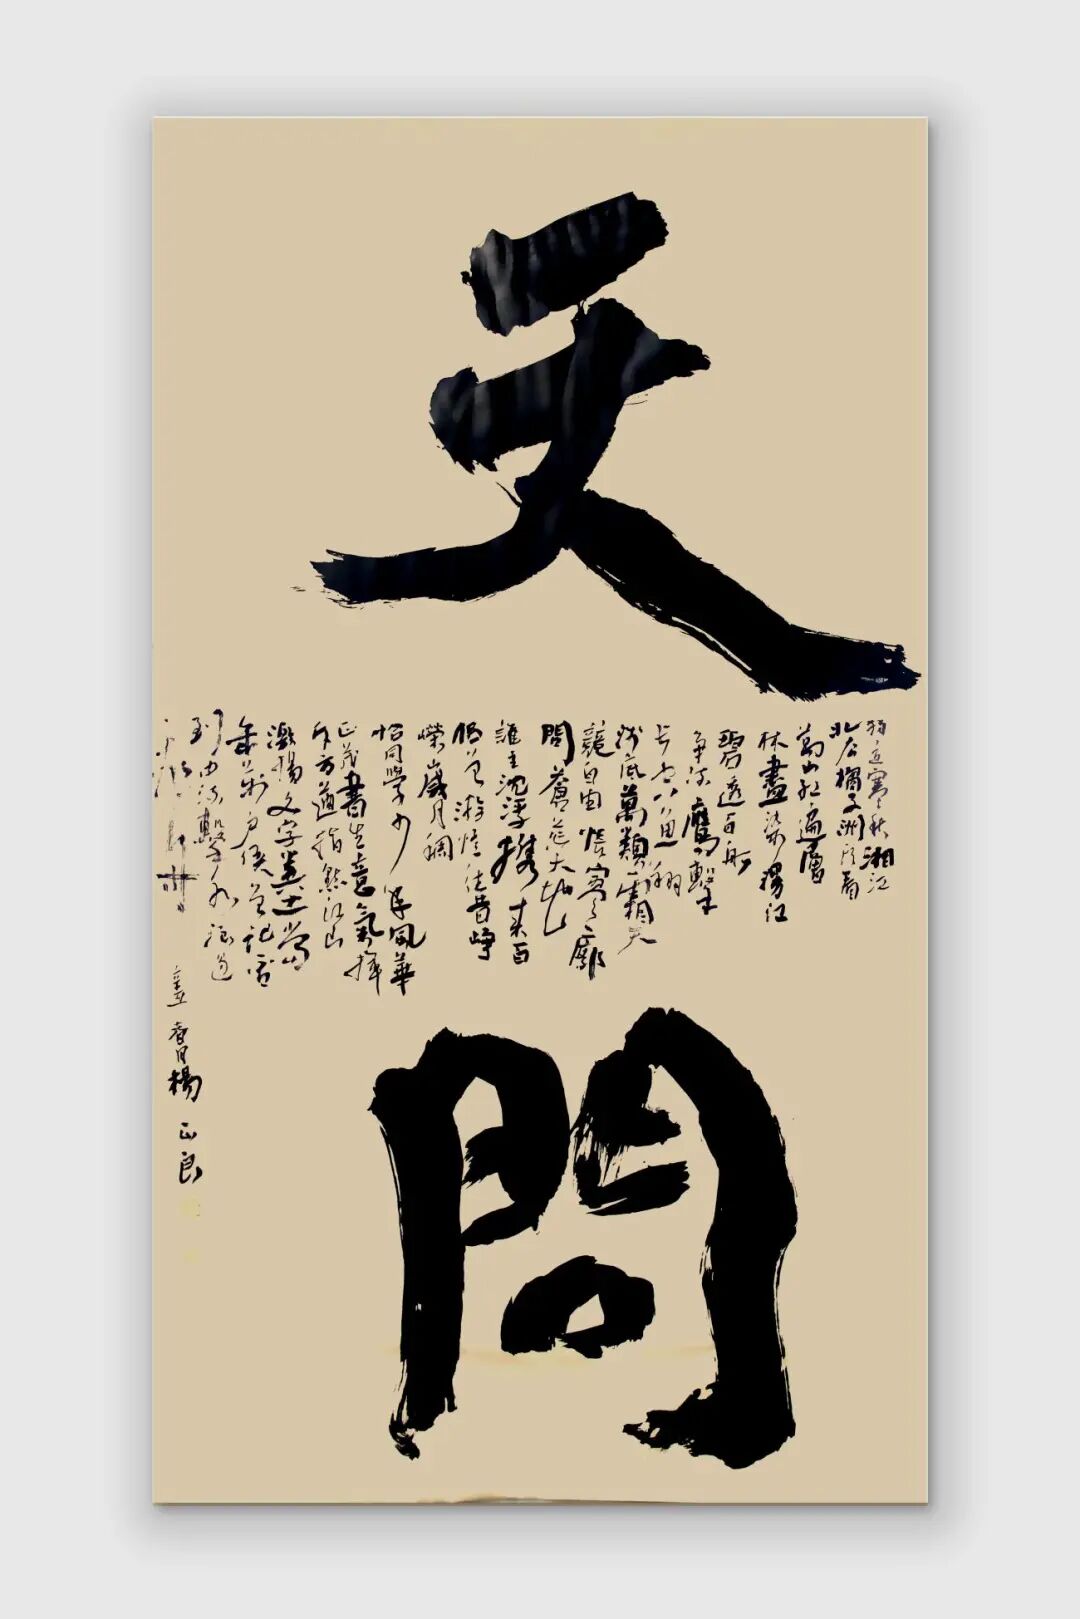 天
獨立寒秋湘江
北去橘子洲頭看
萬山紅遍層
林盡染漫江
碧透百舸
爭流鷹擊
長空魚翔
淺底萬類霜天
競自由悵寥廓
問蒼茫大地
誰主沈浮攜來百
侶曾游憶往昔崢
嶸歲月稠
恰同學少年風華
正茂書生意氣揮
斥方遒指點江山
激揚文字糞土當
年萬戶侯曾記否
到中流擊水浪遏
楊正良
問